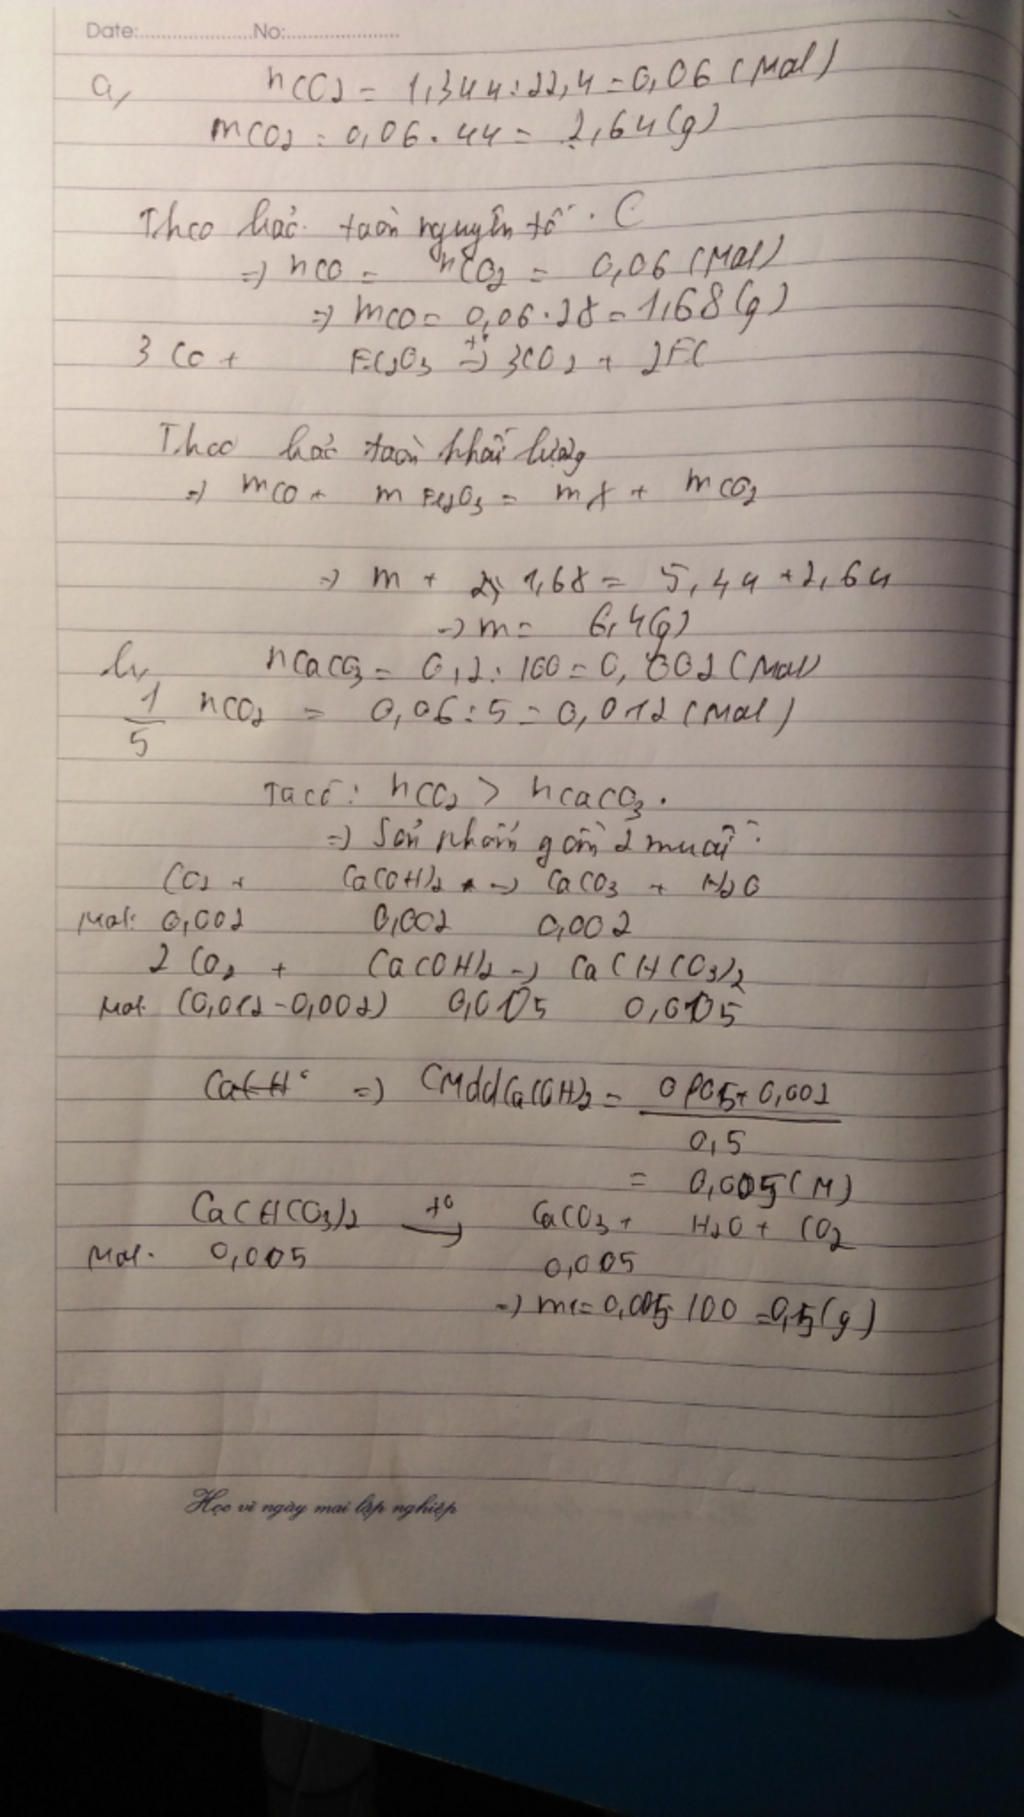 Date:.....................No:.....................
a, nCO2 = 1,344:22,4=0,06 (Mol)
mCO2 = 0,06.44= 2,64(g)
Theo bảo toàn nguyên tố C
=> nCO = nCO2 = 0,06 (Mol)
=> mCO= 0,06.28=1,68(g)
3CO + Fe2O3 t°→ 3CO2 + 2Fe
Theo bảo toàn khối lượng
=> mCO + mFe2O3 = mX + mCO2
=> m + 1,68 = 5,44 +2,64
=> m= 6,4(g)
b, nCaCO3= 0,2:100=0,002 (Mol)
1/5 nCO2 = 0,06:5=0,012 (Mol)
Ta có: nCO2 > nCaCO3.
=> Sản phẩm gồm 2 muối:
CO2 + Ca(OH)2 → CaCO3 + H2O
Mol: 0,002 0,002 0,002
2CO2 + Ca(OH)2 → Ca(HCO3)2
Mol (0,012-0,002) 0,005 0,005
=> CMddCa(OH)2 = 0,005+0,002
0,5
Ca(HCO3)2 t°→ CaCO3 + H2O + CO2
Mol. 0,005 0,005
=> m=0,005.100=0,5(g)
Học vì ngày mai lập nghiệp